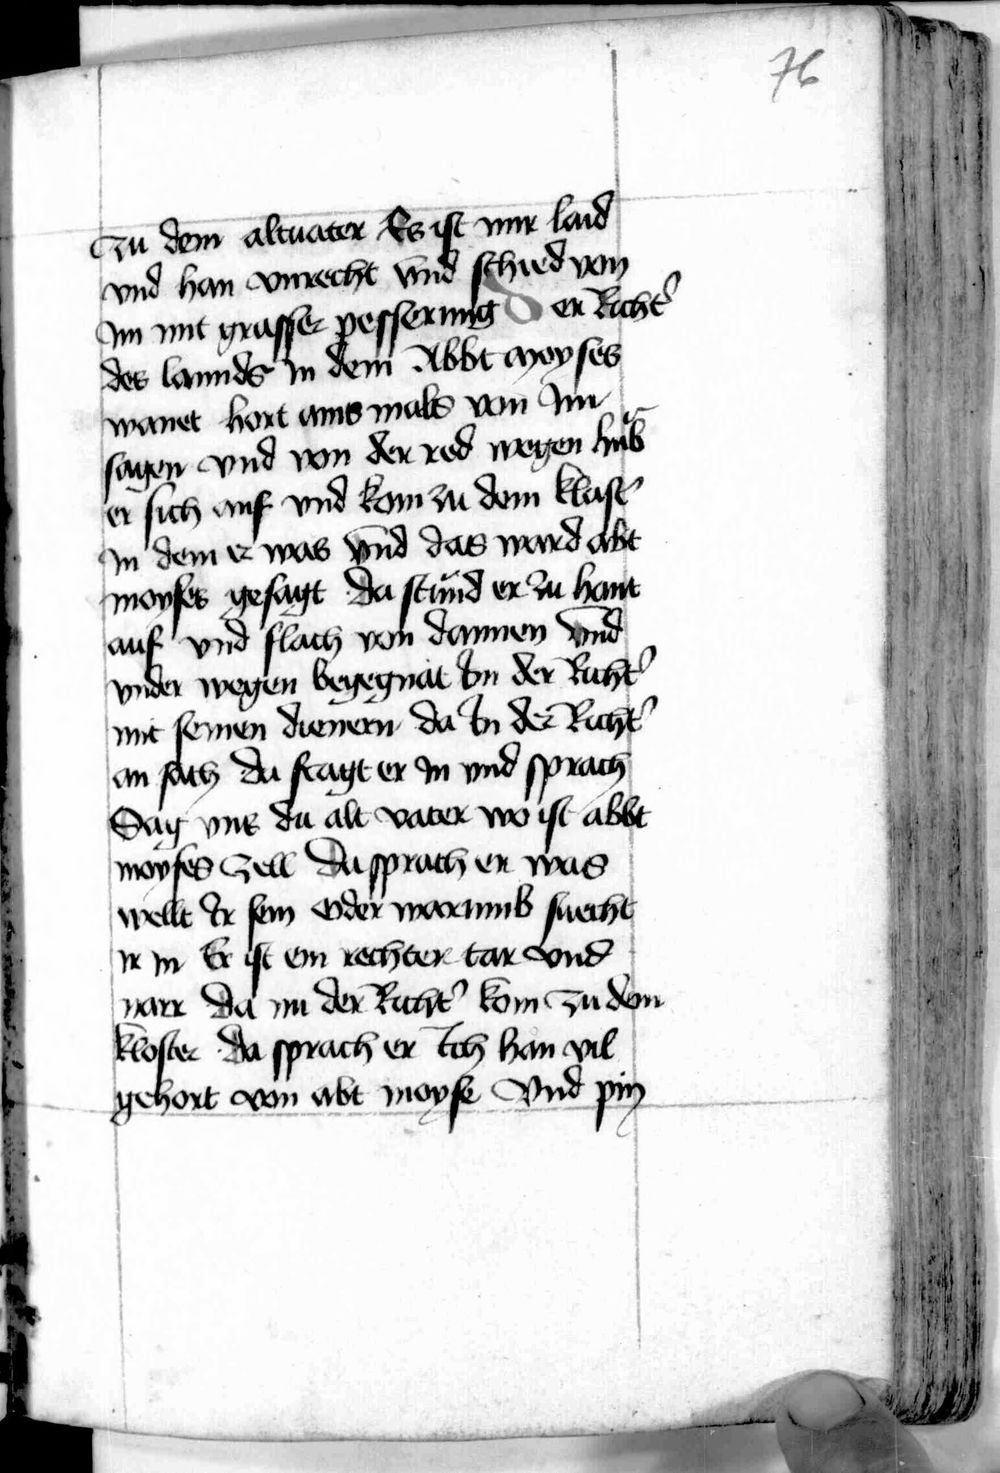 76
zu dem altuater Es ist mir laid
vnd han vnrecht vnd schied von
Im mit grasser pesserung Der Richt͛
des lannds In dem Abbt moyses
wanet hort ains mals von Im
sagen vnd von der red wegen hůb
er sich auf vnd kom zu dem klast͛
In dem er was vnd das ward abt
moyses gesagt da stůnd er zu hant
auf vnd flach von dannen vnd
vnder wegen begegnāt In der Richt͛
mit seinen dienern da In der Richt͛
an sach da fragt er In vnd sprach
Sag vns du alt vater wo ist abbt
moyses zell Da sprach er was
wellt Ir sein oder warumb suecht
ir in Er ist ein rechter tar vnd
narr Da nu der Richt͛ kom zu dem
kloster da sprach er Ich han vil
gehort von abt moyse vnd pin